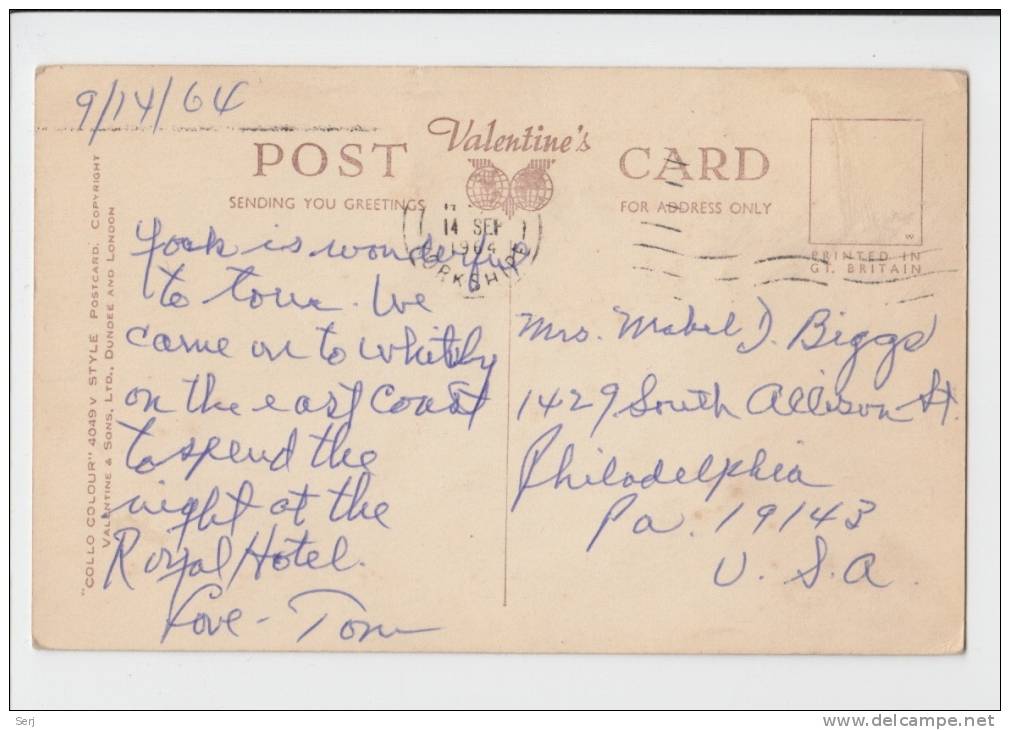 9/14/64
Valentine's
POST CARD
SENDING YOU GREETINGS
FOR ADDRESS ONLY
14 SEP
1964
YORKSHIRE
PRINTED IN
GT. BRITAIN
"COLLO COLOUR" 4049V STYLE POSTCARD. COPYRIGHT
VALENTINE & SONS, LTD., DUNDEE AND LONDON
York is wonderful
to tour. We
came on to Whitby
on the east coast
to spend the
night at the
Royal Hotel.
Love - Tom
Mrs. Mabel D. Biggs
1429 South Allison St.
Philadelphia
Pa. 19143
U.S.A.
Serj
www.delcampe.net